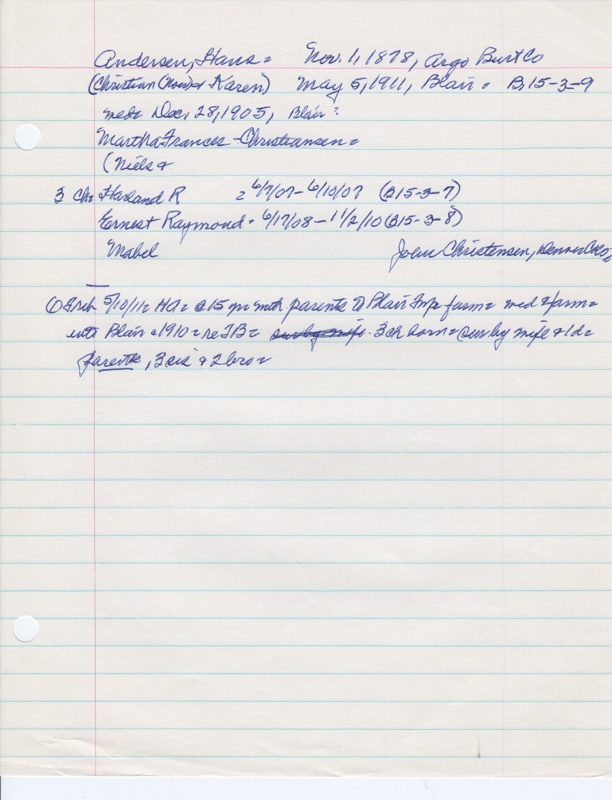 Andersen, Hans = Nov. 1, 1878, Argo Burt Co
(Christian & Karen) May 5, 1911, Blair = B, 15-3-9
med = Dec, 28, 1905, Blair =
Martha Frances Christiansen =
(Niels &
3 Ch = Harland R = 6/7/07 - 6/10/07 (B15-3-7)
Ernest Raymond = 6/17/08 - 11/2/10 (B15-3-8)
Mabel Joan Christensen, Denver Colo,
① 5/10/11 = HA = @15 yr with parents to Blair Twp farm = med & farm =
into Blair @1910 = re TB = 3 ch born = sur by wife & 1d =
parents, 3 sis & 2 bro =